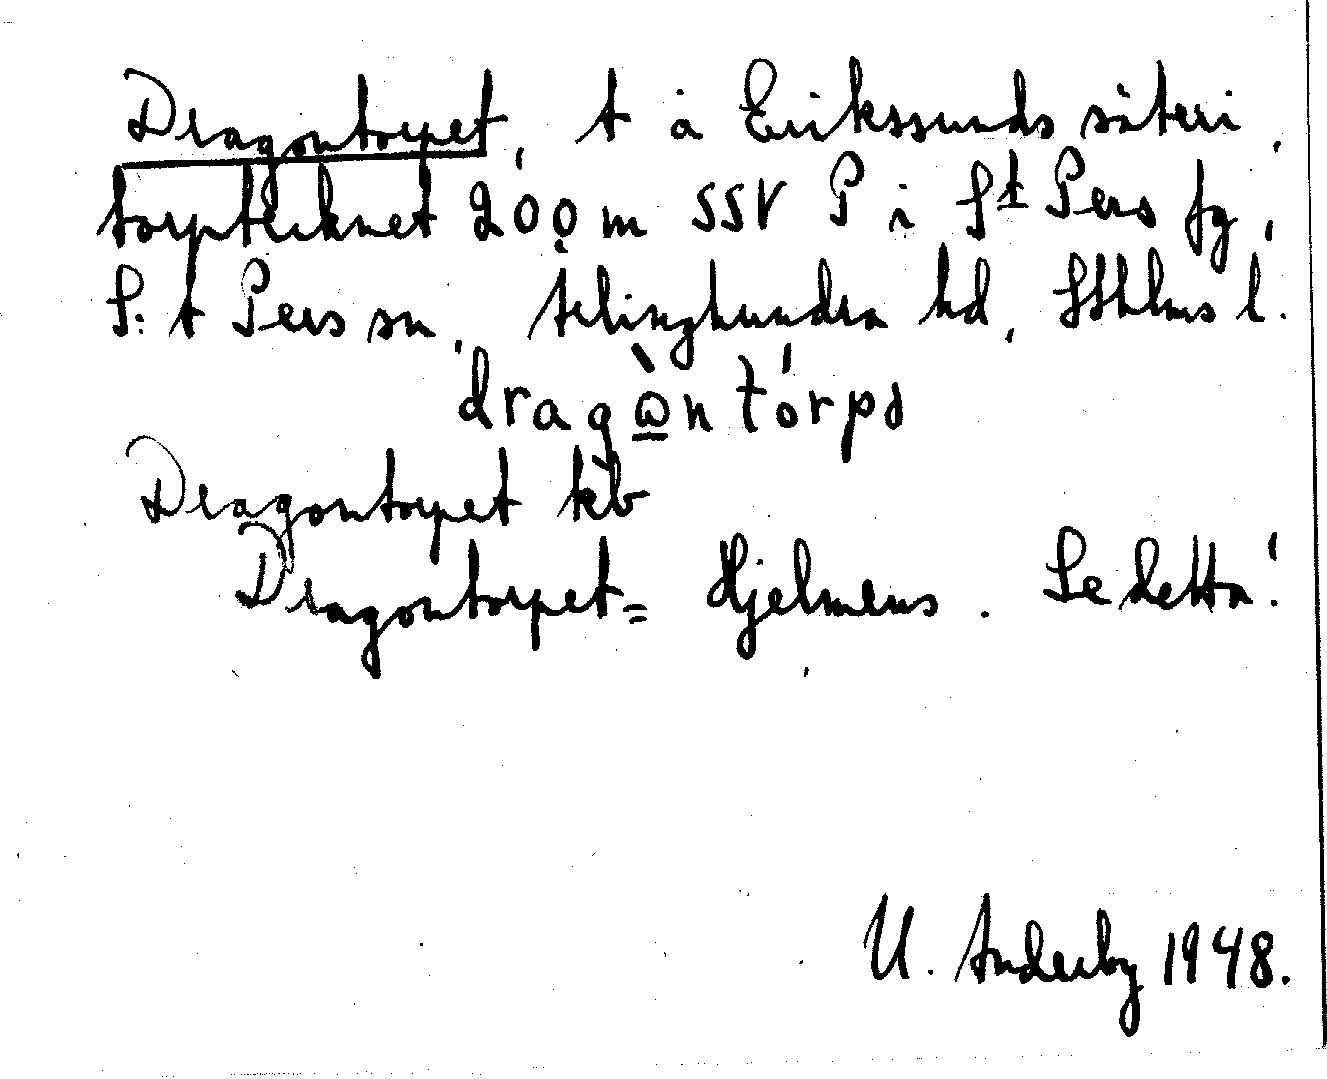 Dragontorpet, t å Erikssunds säteri,
torptecknet 200 m SSV P i S:t Pers fg,
S:t Pers sn, Ärlinghundra hd, Sthlms l.
dragὼntǻrpə
Dragontorpet kb
Dragontorpet = Hjelmens. Se detta!
U. Anderby 1948.